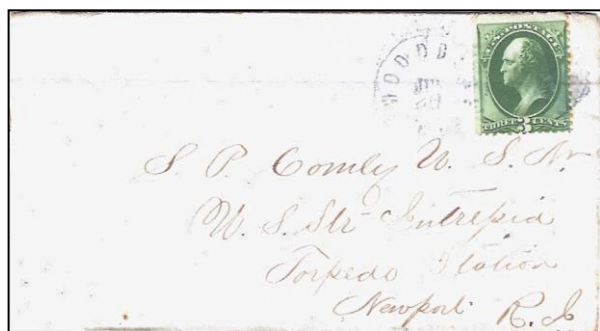 U.S. POSTAGE
THREE 3 CENTS
S. P. Comly U. S. N.
U. S. Str Intrepid
Torpedo Station
Newport R. I